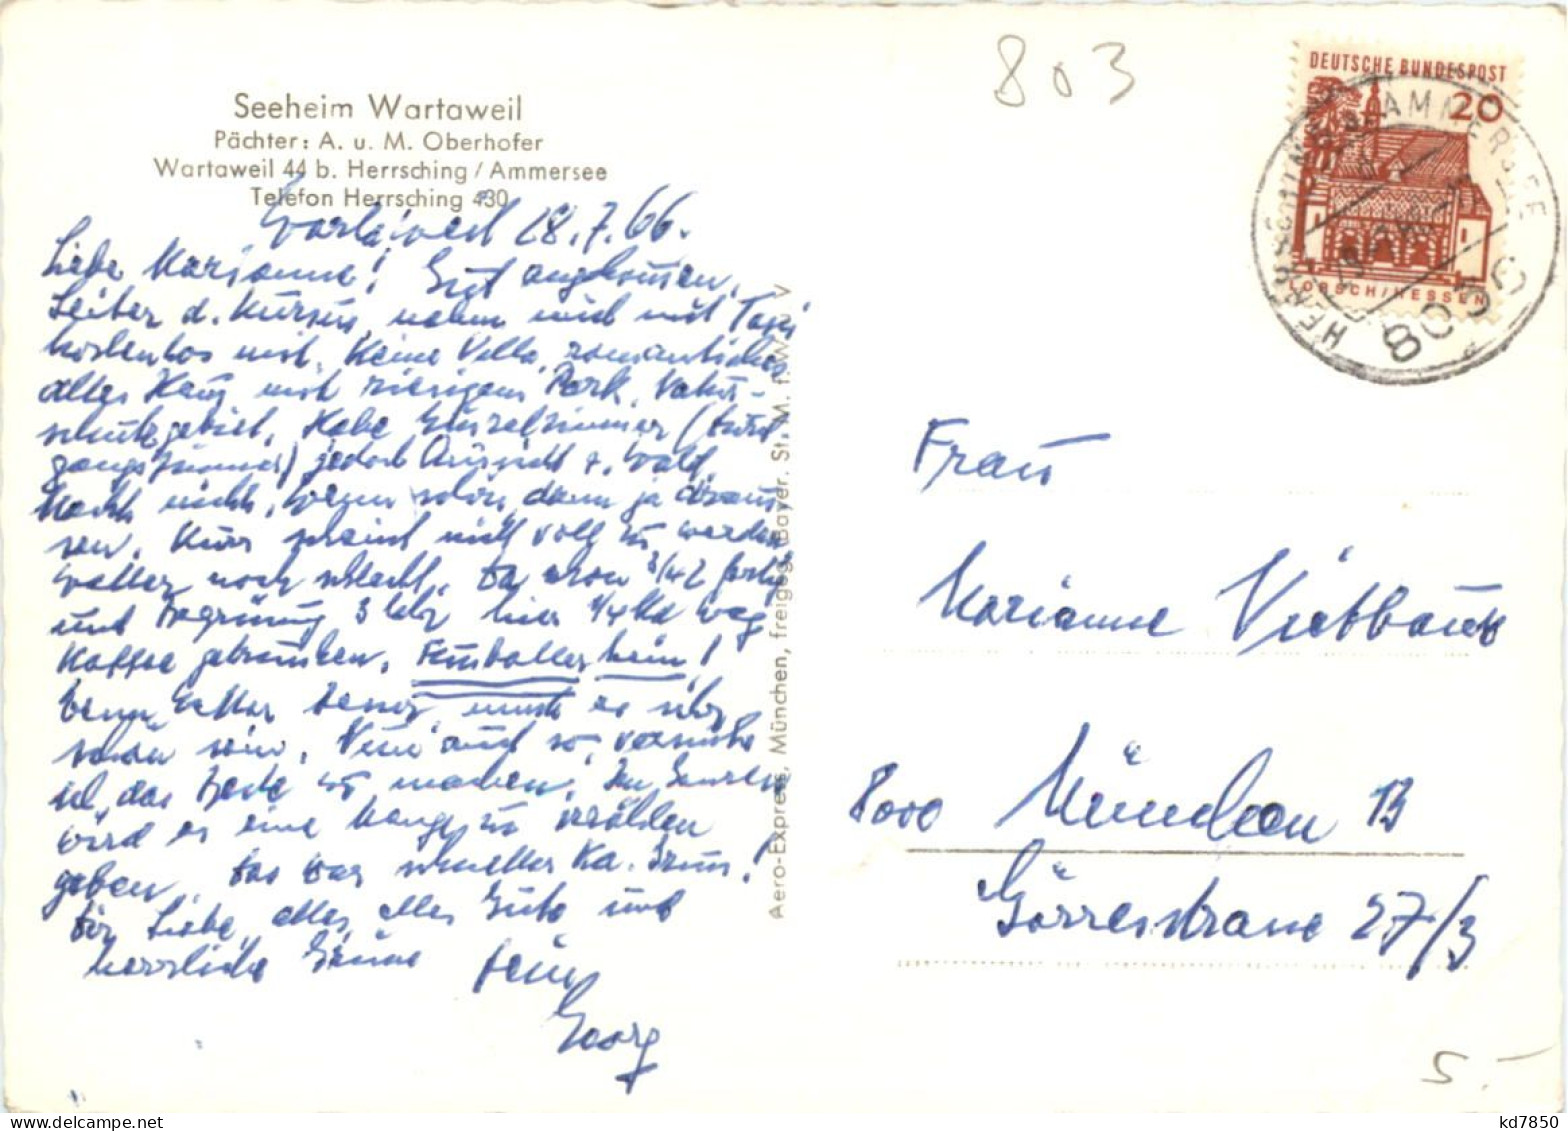 803
DEUTSCHE BUNDESPOST
20
LORSCH/HESSEN
HERRSCHING AMMERSEE
8036
Seeheim Wartaweil
Pächter: A. u. M. Oberhofer
Wartaweil 44 b. Herrsching / Ammersee
Telefon Herrsching 430
Wartaweil 28.7.66.
Liebe Marianne! Gut angekommen,
Leiter d. Kursus nahm mich mit Taxi
kostenlos mit. Keine Villa, romantisches
altes Haus mit riesigem Park. Natur-
schutzgebiet. Habe Einzelzimmer (Durch
gangszimmer) jedoch Aussicht z. Wald.
Macht nichts, wenn schön, dann ja draus
sen. Kurs scheint nicht voll zu werden
Wetter noch schlecht. 3/4 2
und Begrüßung 3 Uhr hier 1/4 Std Weg
Kaffee getrunken. Fussballer heim!
Wenn Wetter besser, muss es sehr
schön sein. Nun auch so, versuche
ich das Beste zu machen. Im
wird es eine Menge zu erzählen
geben. Das war schneller Ka. Gruss!
Dir Liebe alles, alles Gute und
herzliche Grüsse Dein
Georg
Aero-Express, München, freigeg. Bayer. St. M. f. W. V
Frau
Marianne Viehbauer
8000 München 13
Görresstrasse 27/3
5.-
kd7850